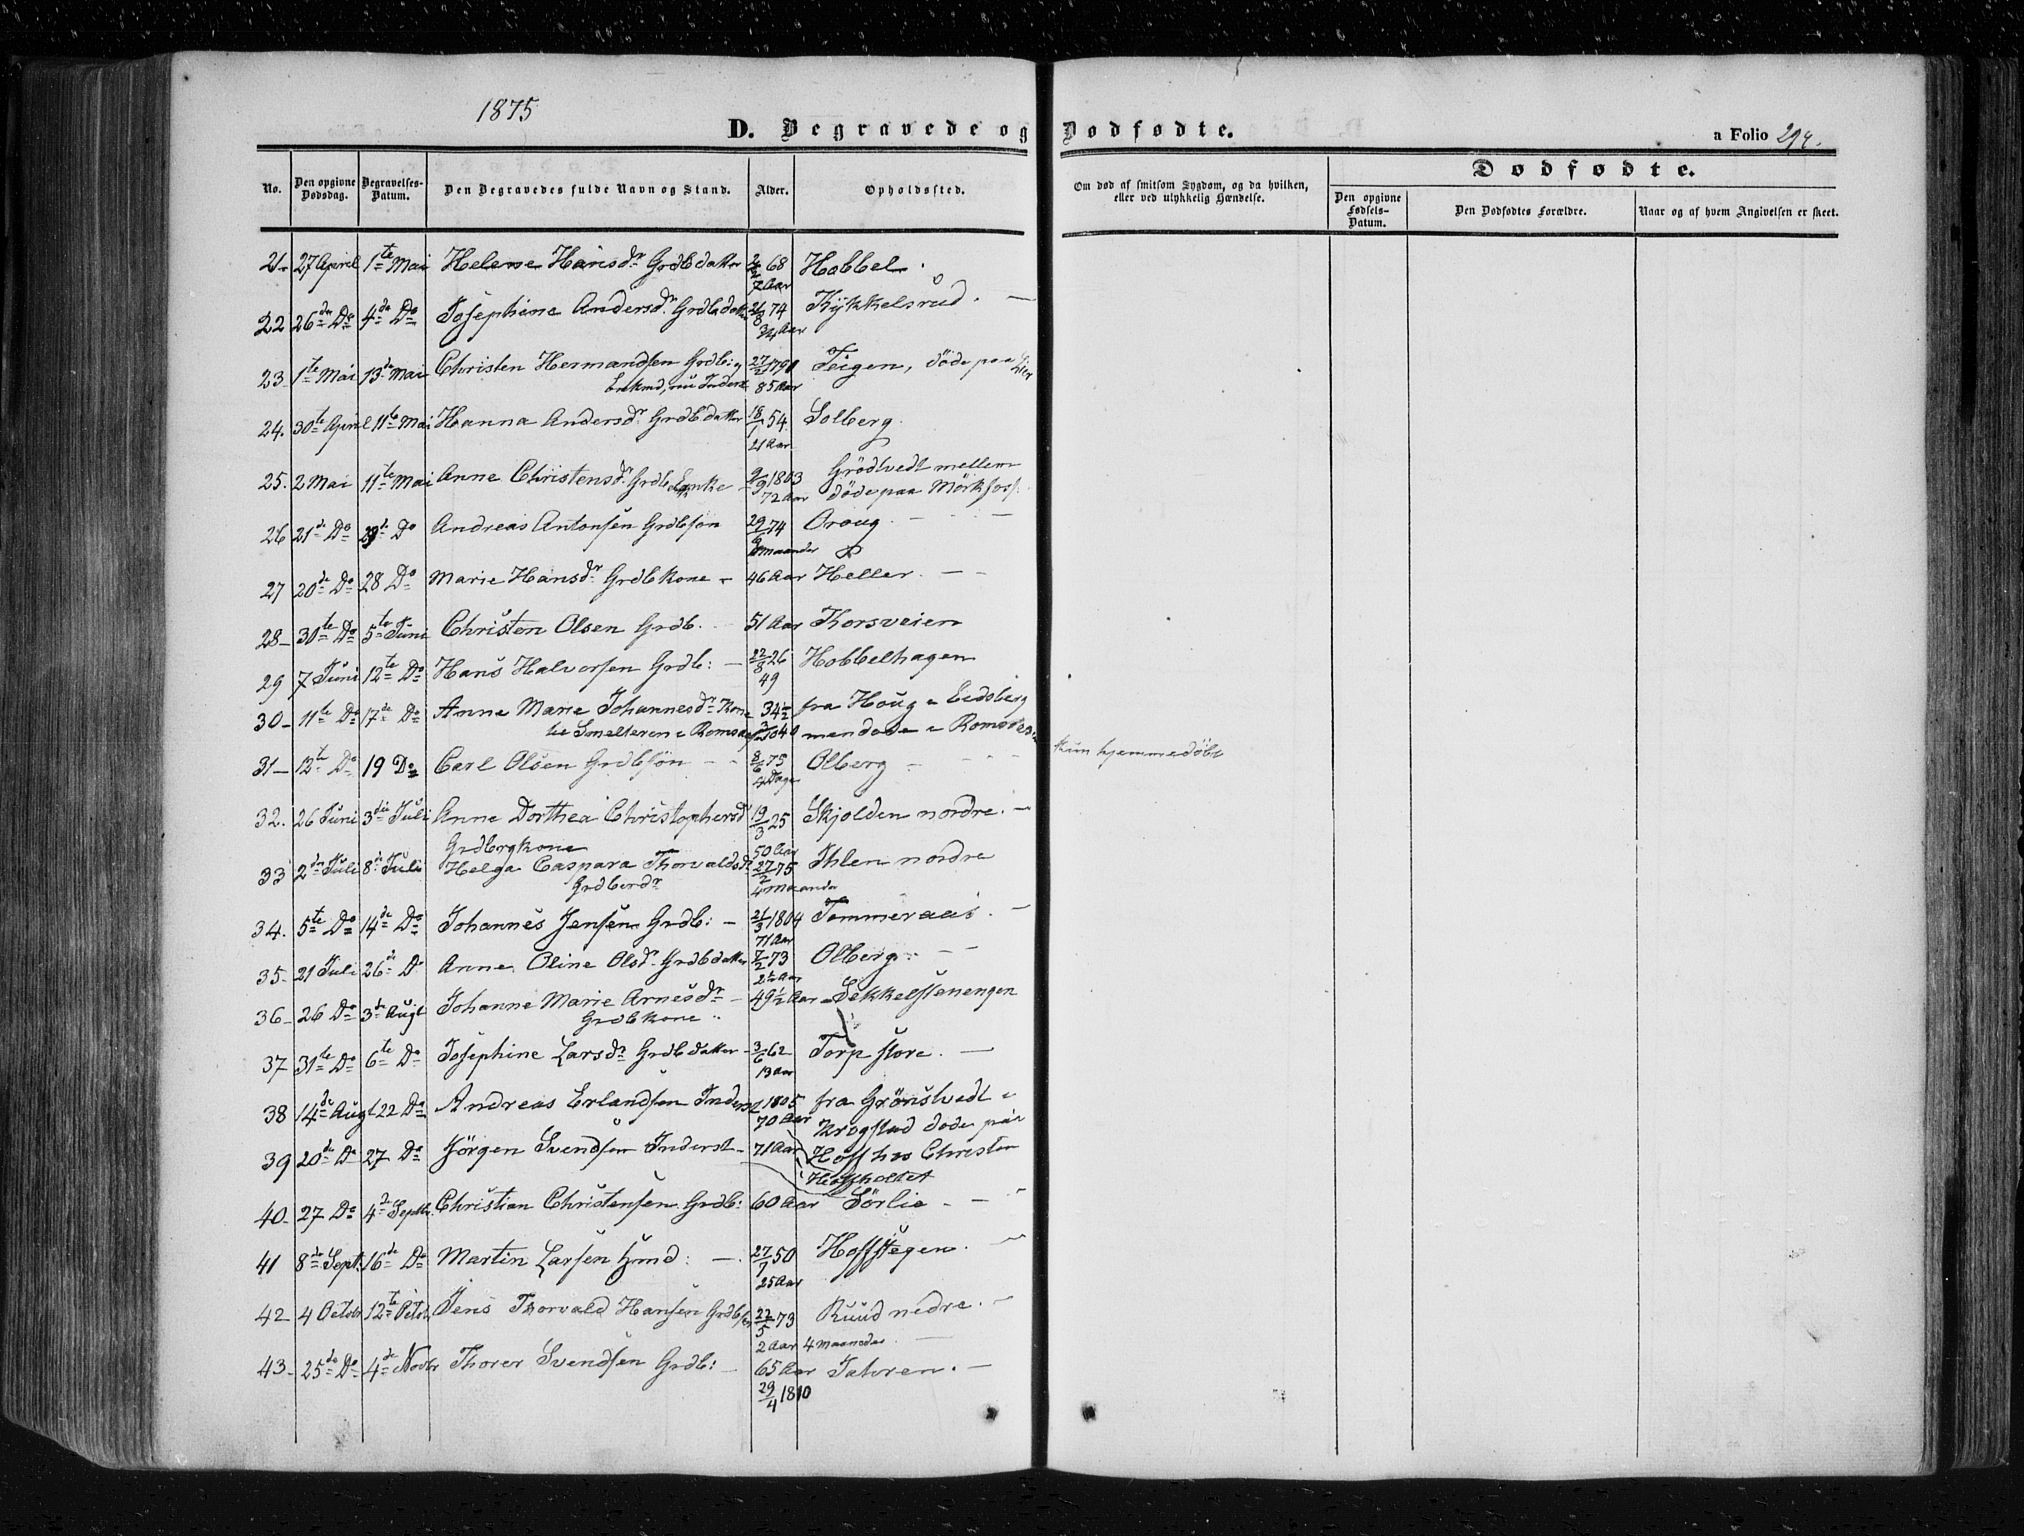 1875
D. Begravede og Dødfødte.
a Folio 294.
No.
Den opgivne Dødsdag.
Begravelses-Datum.
Den Begravedes fulde Navn og Stand.
Alder.
Opholdssted.
Om død af smitsom Sygdom, og da hvilken, eller ved ulykkelig Hændelse.
Dødfødte.
Den opgivne Fødsels-Datum.
Den Dødfødtes Forældre.
Naar og af hvem Angivelsen er skeet.
21. 27 April 1te Mai Helene Hansdr Grdb datter 68 Hobbel.
7 Aar
22 26de Do 4de Do Josephine Andersdr Grdb datter 74 Kykkelsrud. —
3/4 Aar
23 1te Mai 13de Mai Christen Hermandsen Grdb: 27/2 1790 Teigen, døde paa Lier
Enkmd, nu Inderst 85 Aar
24. 30te April 11te Mai Hanna Andersdr Grdb datter 18/1 54. Solberg.
21 Aar
25. 2 Mai 11te Mai Anne Christensdr Grdb Enke 1803 Grödtvedt mellem
72 Aar döde paa Mörkfoss.
26 21de Do 29de Do Andreas Antonsen Grdbsön 29/ 74 Oroug. —
maaneder
27 20de Do 28 Do Marie Hansdr Grdb kone - 46 Aar Heller. —
28- 30te Do 5te Juni Christen Olsen Grdb. 51 Aar Thorsveien
29 7 Juni 12te Do Hans Halvorsen Grdb: — 22/8 26 Hobbelhagen
49
30- 11te Do 17de Do Anne Marie Johannesdr Kone 34 1/2 fra Houg i Eidsberg
til Smelteren i Romsdal men döde i Romsdal
31— 12te Do 19 Do Carl Olsen Grdbsön — 8/6 75 Olberg —
4 Dage
kun hjemmedöbt
32. 26 Juni 3die Juli Anne Dorthea Christophersdr 19/3 25 Skjolden nordre. —
Grdbrgkone 50 Aar
33 2den Juli 8de Juli Helga Caspara Thorvaldsdr 27/2 75 Ihlen nordre
Grdberdr 4 maander
34. 5te Do 14de Do Johannes Jensen Grdb: — 21/3 1804 Tømmeraas. —
71 Aar
35- 21 Juli 26de Do Anne Oline Olsdr Grdb datter 7/2 73 Olberg. —
2 1/2 Aar
36- 26 Do 3de Augt Johanne Marie Arnesdr — 49 1/2 Aar Sekkelstenengen
Grdb kone
37 31te Do 6te Do Josephine Larsdr Grdb datter - 3/6 62 Torp store. —
13 Aar
38 14de Augt 22 Do Andreas Erlandsen Inderst 1805 fra Grönstvedt i
70 Aar Krogstad döde paa
39 20de Do 27 Do Jörgen Svendsen Inderst - 71 Aar Hoff hos Christen
Hoffholtet
40- 27 Do 4de Septbr. Christian Christensen Grdb: 60 Aar Sörlie —
41 8de Sept. 16de Do Martin Larsen Hmd: —. 27/7 50 Hoffstegen. —
25 Aar
42- 4 Octobr 12te Octob. Jens Thorvald Hansen Grdbsön 22/5 73 Ruud nedre. —
2 Aar 4 maaneder
43- 25de Do 4de Novbr Thorer Svendsen Grdb: — 65 Aar Tatvren. —
29/4 1810